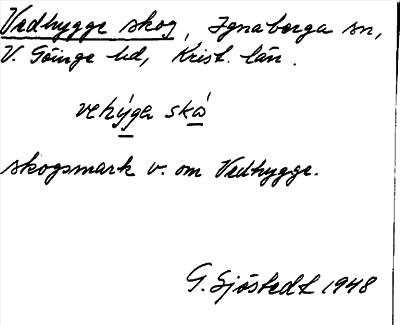 Vedhygge skog, Ignaberga sn,
V. Göinge hd, Krist. län.
vehýga skå
skogsmark v. om Vedhygge.
G. Sjöstedt 1948